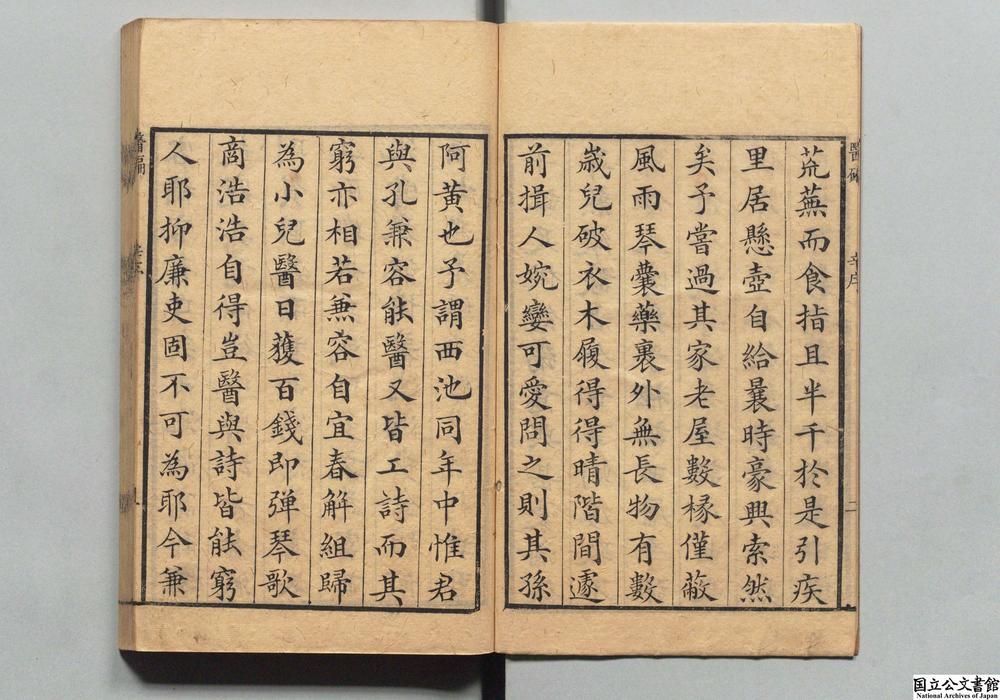 荒蕪而食指且半千於是引疾
里居懸壺自給曩時豪興索然
矣予嘗過其家老屋數椽僅蔽
風雨琴囊藥裹外無長物有數
歲兒破衣木屐得得晴階間遽
前揖人婉孌可愛問之則其孫
阿黃也予謂西池同年中惟君
與孔兼容能醫又皆工詩而其
窮亦相若兼容自宜春解組歸
為小兒醫日獲百錢即弹琴歌
商浩浩自得豈醫與詩皆能窮
人耶抑廉吏固不可為耶今兼
国立公文書館
National Archives of Japan